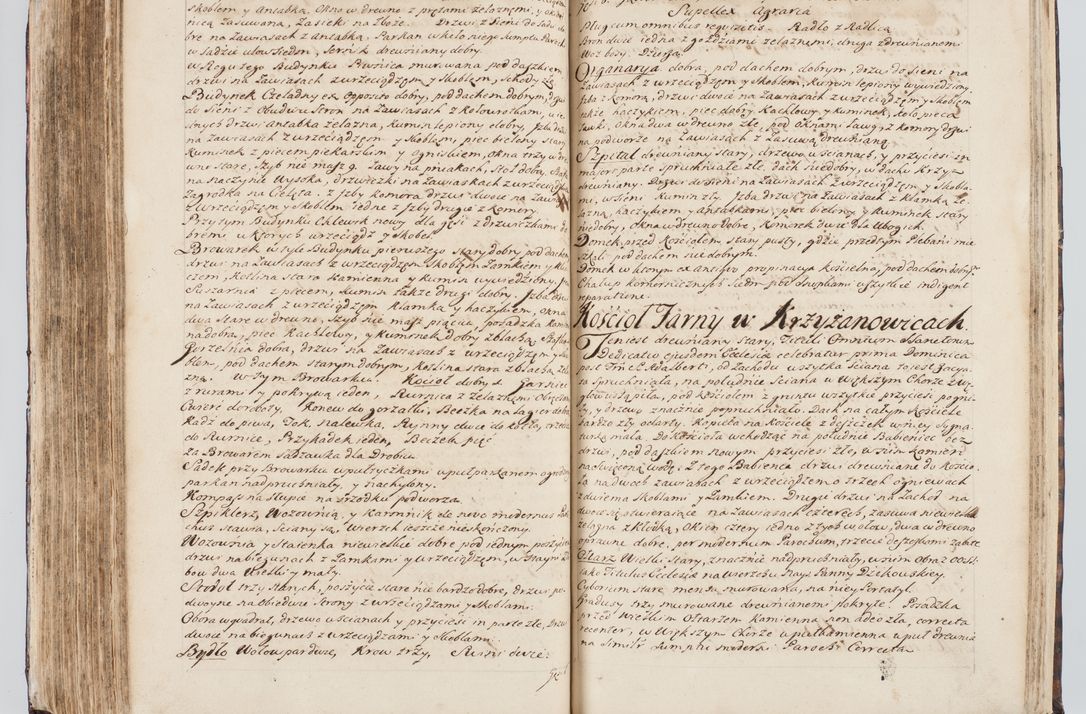 Skoblem y Antabką. Okno w drewno z prętami żelaznemi, y okien
nicą Zasuwaną, Zasieki na Zboże. Drzwi z Sieni do Sadu do
bre na Zawiasach z antabką, Parkan w koło niego Sumptu Paroch.
w Sadzie ulow Siedm, Sernik drewniany dobry.
w Rogu tego Budynku Piwnica murowana pod daszkiem,
drzwi na Zawiasach z wrzeciądzem y Skoblem, Schody złe
Budynek Czeladny ex opposito dobry, pod dachem dobrym, drzwi
do Sieni z Obudwu Stron na Zawiasach z
drzwi antabka żelazna, Kumin lepiony dobry, Izba drzwi
na Zawiasach z wrzeciądzem y Skoblem, piec bielony Stary
Kuminek z piecem piekarskim y ogniskiem, okna trzy w drew
wnie stare, Szyb nie masz 9. Ławy na pniakach, Stół dobry,
na naczynie Wysoka, drzwiczki na Zawiaskach z wrzeciądz
Zagrodka na Cielęta. z Izby Komora drzwi dwoie na Zawias
z wrzeciądzem y Skoblem iedne z Izby drugie z Komory
Przy tym Budynku Chlewek nowy dla gęsi z drzwiczkami do
bremi u ktorych wrzeciądz y Skobel.
Browarek w tyle Budynku pierwszego Stary dobry pod dachem
drzwi na Zawiasach z wrzeciądzem Skoblem Zamkiem y klu
czem, Kotlina stara Kamienna y Kumin wywiedziony.
Suszarnia z piecem, Kumin także drugi dobry. Izba drzwi
na Zawiasach z wrzeciądzem Klamką y haczykiem, okna
dwa Stare w drewno, Szyb nie masz pięciu, posadzka Kamien
na dobra, piec Kachlowy, y Kuminek dobry z blachą,
Gorzelnia dobra, drzwi na Zawiasach z wrzeciądzem y Sko
blem, pod dachem starym dobrym, Kotlina stara z blachą żela
zną. w tym Browarku. Kocioł dobry Garniec
z rurami y pokrywą ieden, Kurnica z żelaznemi Obręczami
Ćwierć do roboty Konew do gorzałki, Beczka na Lagier dobra
Kadź do piwa, Tok nalewka, Rynny dwie do kotła, trzecia
do Kurnice, Przykadek ieden, Beczek pięć
za Browarem Sadzawka dla Drobiu
Sadek przy Browarku w puł tyczkami w puł parkanem ogrodzony
parkan nadpruchniały, y nachylony.
Kompas na Słupie na srzodku podworza.
Szpiklerz, Wozownią, y Karmnik de novo modernus Paro
chus stawia, Sciany są, Wierzch ieszcze nieskończony
Wozownia y Staienka niewielkie dobre pod iednym poszyciem
drzwi na biegunach z Zamkami y wrzeciądzem, w Stayni żło
bow dwa Wielki y mały.
Stodoł trzy Starych, poszycie stare nie bardzo dobre, drzwi po
dwoyne na Obiedwie Strony z wrzeciądzami y Skoblami.
Obora w quadrat, drzewo w scianach y przyciesi in parte złe, Drzwi
dwoie na biegunach z wrzeciądzami y Skoblami.
Bydło Wołow par dwie, Krow trzy, Swini dwie.
Supellex Agraria
Pług cum omnibus requisitis. Radło z Radlicą
Bron dwie iedna z goździami żelaznemi, druga z drewnianemi
Woz bosy. Dzieża
Organarya dobra, pod dachem dobrym, drzwi do Sieni na
Zawiasach z wrzeciądzem y Skoblem, Kumin lepiony wywiedziony,
Izba z Komorą, drzwi dwoie na Zawiasach z wrzeciądzem y Skoblem
także haczykiem, piec dobry Kachlowy y Kuminek, koło pieca
ławki, okna dwa w drewno złe, pod oknami ławy, z Komory drzwi
na podworze na Zawiasach z Zasuwą drewnianą
Szpital drewniany stary, drzewo w scianach, y przyciesi in
majori parte Spruchniałe złe, dach niedobry, w dachu krzyż
drewniany. Drzwi do Sieni na Zawiasach z wrzeciądzem y Skobla
mi, w Sieni Kumin zły. Izba drzwi na Zawiasach z klamką że
lazną, haczykiem y antabkami, piec bielony y Kuminek stary
niedobry, Okna w drewno dobre, Komorek dwie dla Ubogich.
Domek przed Kościołem stary pusty, gdzie przedtym Plebani mie
szkali pod dachem niedobrym.
Domek w ktorym ex antiquo propinacya kościelna, pod dachem dobrym
Chałup komorniczych Siedm pod snopkami wszystkie indigent
reparatione.
Kościoł Farny w Krzyżanowicach.
Ten iest drewniany stary, Tituli Omnium Sanctorum.
Dedicatio ejusdem Ecclesiæ celebratur prima Dominica
post Festum S. Adalberti, od Zachodu wszytka Sciana to iest Facya
ta Spruchniała, na południe Sciana w Większym Chorze Zwę
głowaszi piła, pod Kościołem z gruntu wszytkie przyciesi pogni
ły, y drzewo znacznie popruchniało. Dach na całym Kościele
bardzo zły odarty. Kopuła na Kościele z deszczek w niey Sygna
turka mała. Do Kościoła wchodząc na południe Babieniec bez
drzwi, pod daszkiem nowym przyciesi złe, w nim kamień
na święconą wodę. Z tego Babieńca drzwi drewniane do Koscio
ła na dwoch Zawiasach z wrzeciądzem o trzech ogniwach
z dwiema Skoblami y Zamkiem. Drugie drzwi na Zachod na
dwoie otwieraiące na Zawiasach czterech, zasuwa niewielka
żelazna z klotką, Okien cztery iedno z tych w ołow, dwa w drewno
oprawne dobre, per modernum Parochum, trzecie deszczkami zabite
Ołtarz Wielki stary, znacznie nadpruchniały, w nim Obraz OOSS.
jako Titulus Ecclesiæ na wierzchu Nays. Panny Dzikowskiey.
Cyborium stare mensa murowana, na niey Portatyl.
Gradusy trzy murowane drewnianemi pokryte. Posadzka
przed Wielkim Ołtarzem kamienna non adeo zła, correcta
recenter, w Większym Chorze w puł kamienna w puł drewnia
na Simili Sumptu moderni Parochi Correcta